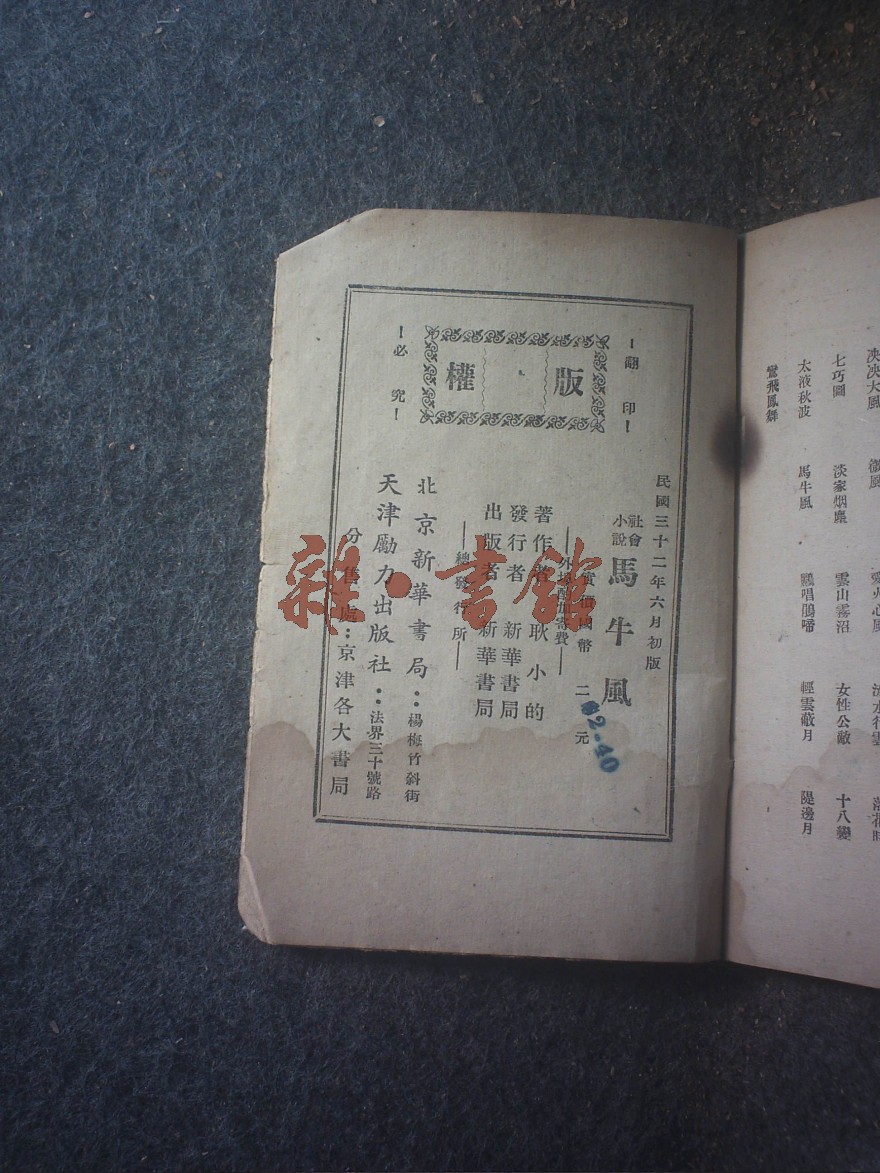 決決大風
徵風
愛火心風
流水行雲
落花時
七巧圖
淡家烟塵
雲山霧沼
女性公敵
十八變
太液秋波
馬牛風
鸝唱鵑啼
輕雲蔽月
隄邊月
鸞飛鳳舞
翻印
版權
必究
民國三十二年六月初版
社會小說
馬牛風
實價國幣 二元
$2.40
外埠酌加寄費
著作者 耿小的
發行者 新華書局
出版者 新華書局
總發行所
北京新華書局:楊梅竹斜街
天津勵力出版社:法界三十號路
分售處:京津各大書局
雜·書館